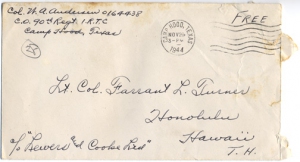 Col. W. A. Anderson 0164438
C.O. 90th Regt. I.R.T.C
Camp Hood, Texas
CAMP HOOD, TEXAS
NOV
1944
FREE
Lt. Col. Farrant L. Turner
Honolulu
Hawaii
T. H.
c/o "Lewers & Cooke Ltd"